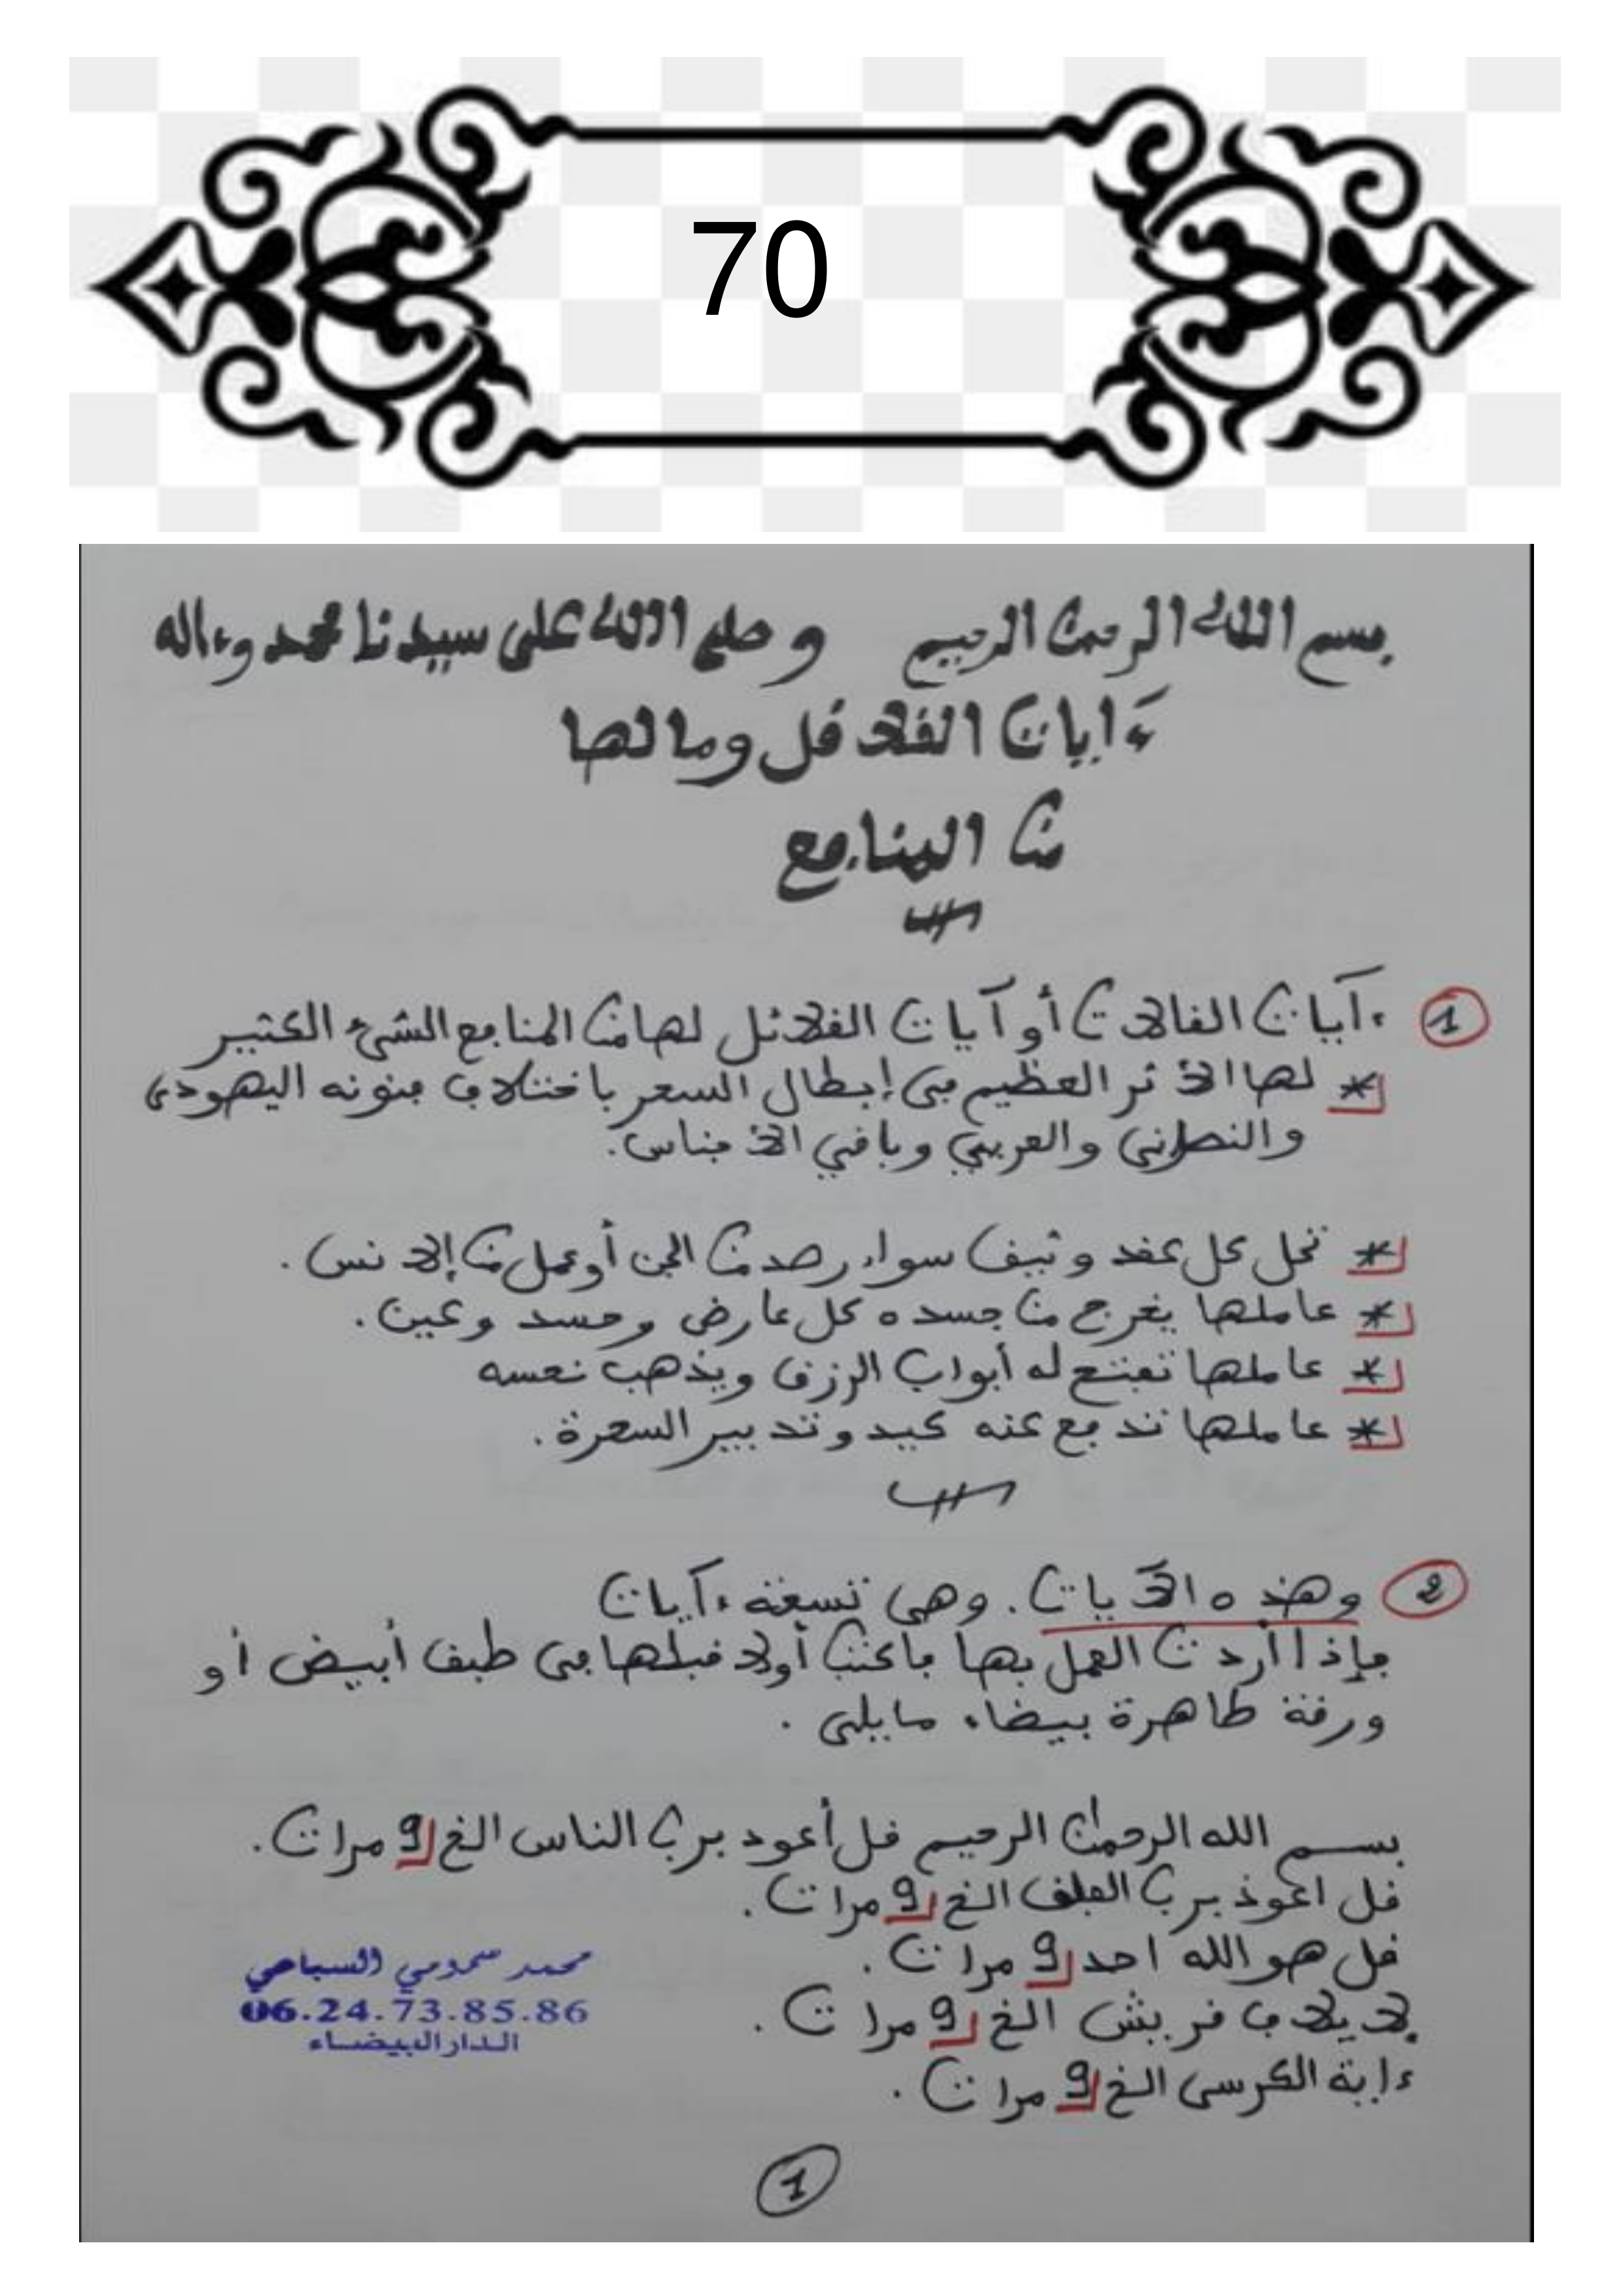 70
بسم الله الرحمن الرحيم وصلى الله على سيدنا محمد وءاله
ءايات القلاقل ومالها
من المنافع
1 ءآيات القالات أو آيات القلائل لها من المنافع الشيء الكثير
* لها الأثر العظيم في إبطال السحر باختلاف فنونه اليهودي
والنصراني والعربي وباقي الأجناس.
* تحل كل عقد وثيق سواء رصد من الجن أو عمل من الإنس.
* عاملها يخرج من جسده كل عارض وحسد وعين.
* عاملها تفتح له أبواب الرزق ويذهب نحسه
* عاملها تدفع عنه كيد وتدبير السحرة.
2 وهذه الآيات. وهي تسعة ءآيات
فإذا أردت العمل بها فاكتب أولا قبلها في طبق أبيض أو
ورقة طاهرة بيضاء مايلي.
بسم الله الرحمن الرحيم قل أعود برب الناس الخ 9 مرات.
قل اعوذ برب الفلق الخ 9 مرات.
قل هو الله احد 9 مرات.
لإيلاف قريش الخ 9 مرات.
ءاية الكرسي الخ 9 مرات.
محمد سمومي السباعي
06.24.73.85.86
الدار البيضاء
1